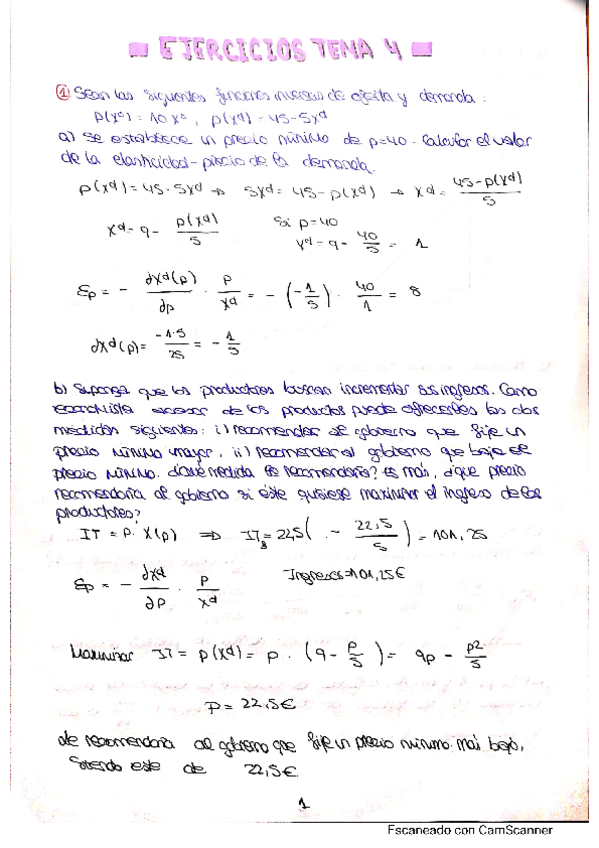 EJERCICIOS TEMA 4
① Sean las siguientes funciones inversas de oferta y demanda:
p(x⁰) = 10x⁰, p(xᵈ) = 45-5xᵈ
a) Se establece un precio mínimo de p=40. Calcular el valor
de la elasticidad-precio de la demanda.
p(xᵈ) = 45-5xᵈ → 5xᵈ = 45-p(xᵈ) → xᵈ = 45-p(xᵈ) / 5
xᵈ = 9 - p(xᵈ)/5 Si p=40
xᵈ = 9 - 40/5 = 1
Ep = - ∂xᵈ(p)/∂p · p/xᵈ = - (-1/5) · 40/1 = 8
∂xᵈ(p) = -1·5/25 = -1/5
b) Suponga que los productores buscan incrementar sus ingresos. Como
economista asesor de los productos puede ofrecerles las dos
medidas siguientes: i) recomendar al gobierno que fije un
precio mínimo mayor, ii) recomendar al gobierno que baje el
precio mínimo. ¿Qué medida es recomendaría? Es más, ¿qué precio
recomendaría al gobierno si éste quisiese maximizar el ingreso de los
productores?
IT = p · x(p) ⇒ IT = 22,5( - 22,5/5 ) = 101,25
Ep = - ∂xᵈ/∂p · p/xᵈ Ingresos=101,25€
Maximizar IT = p(xᵈ) = p · (9 - p/5) = 9p - p2/5
P = 22,5€
Le recomendaria al gobierno que fije un precio minimo mas bajo,
siendo este de 22,5€.
1
Escaneado con CamScanner